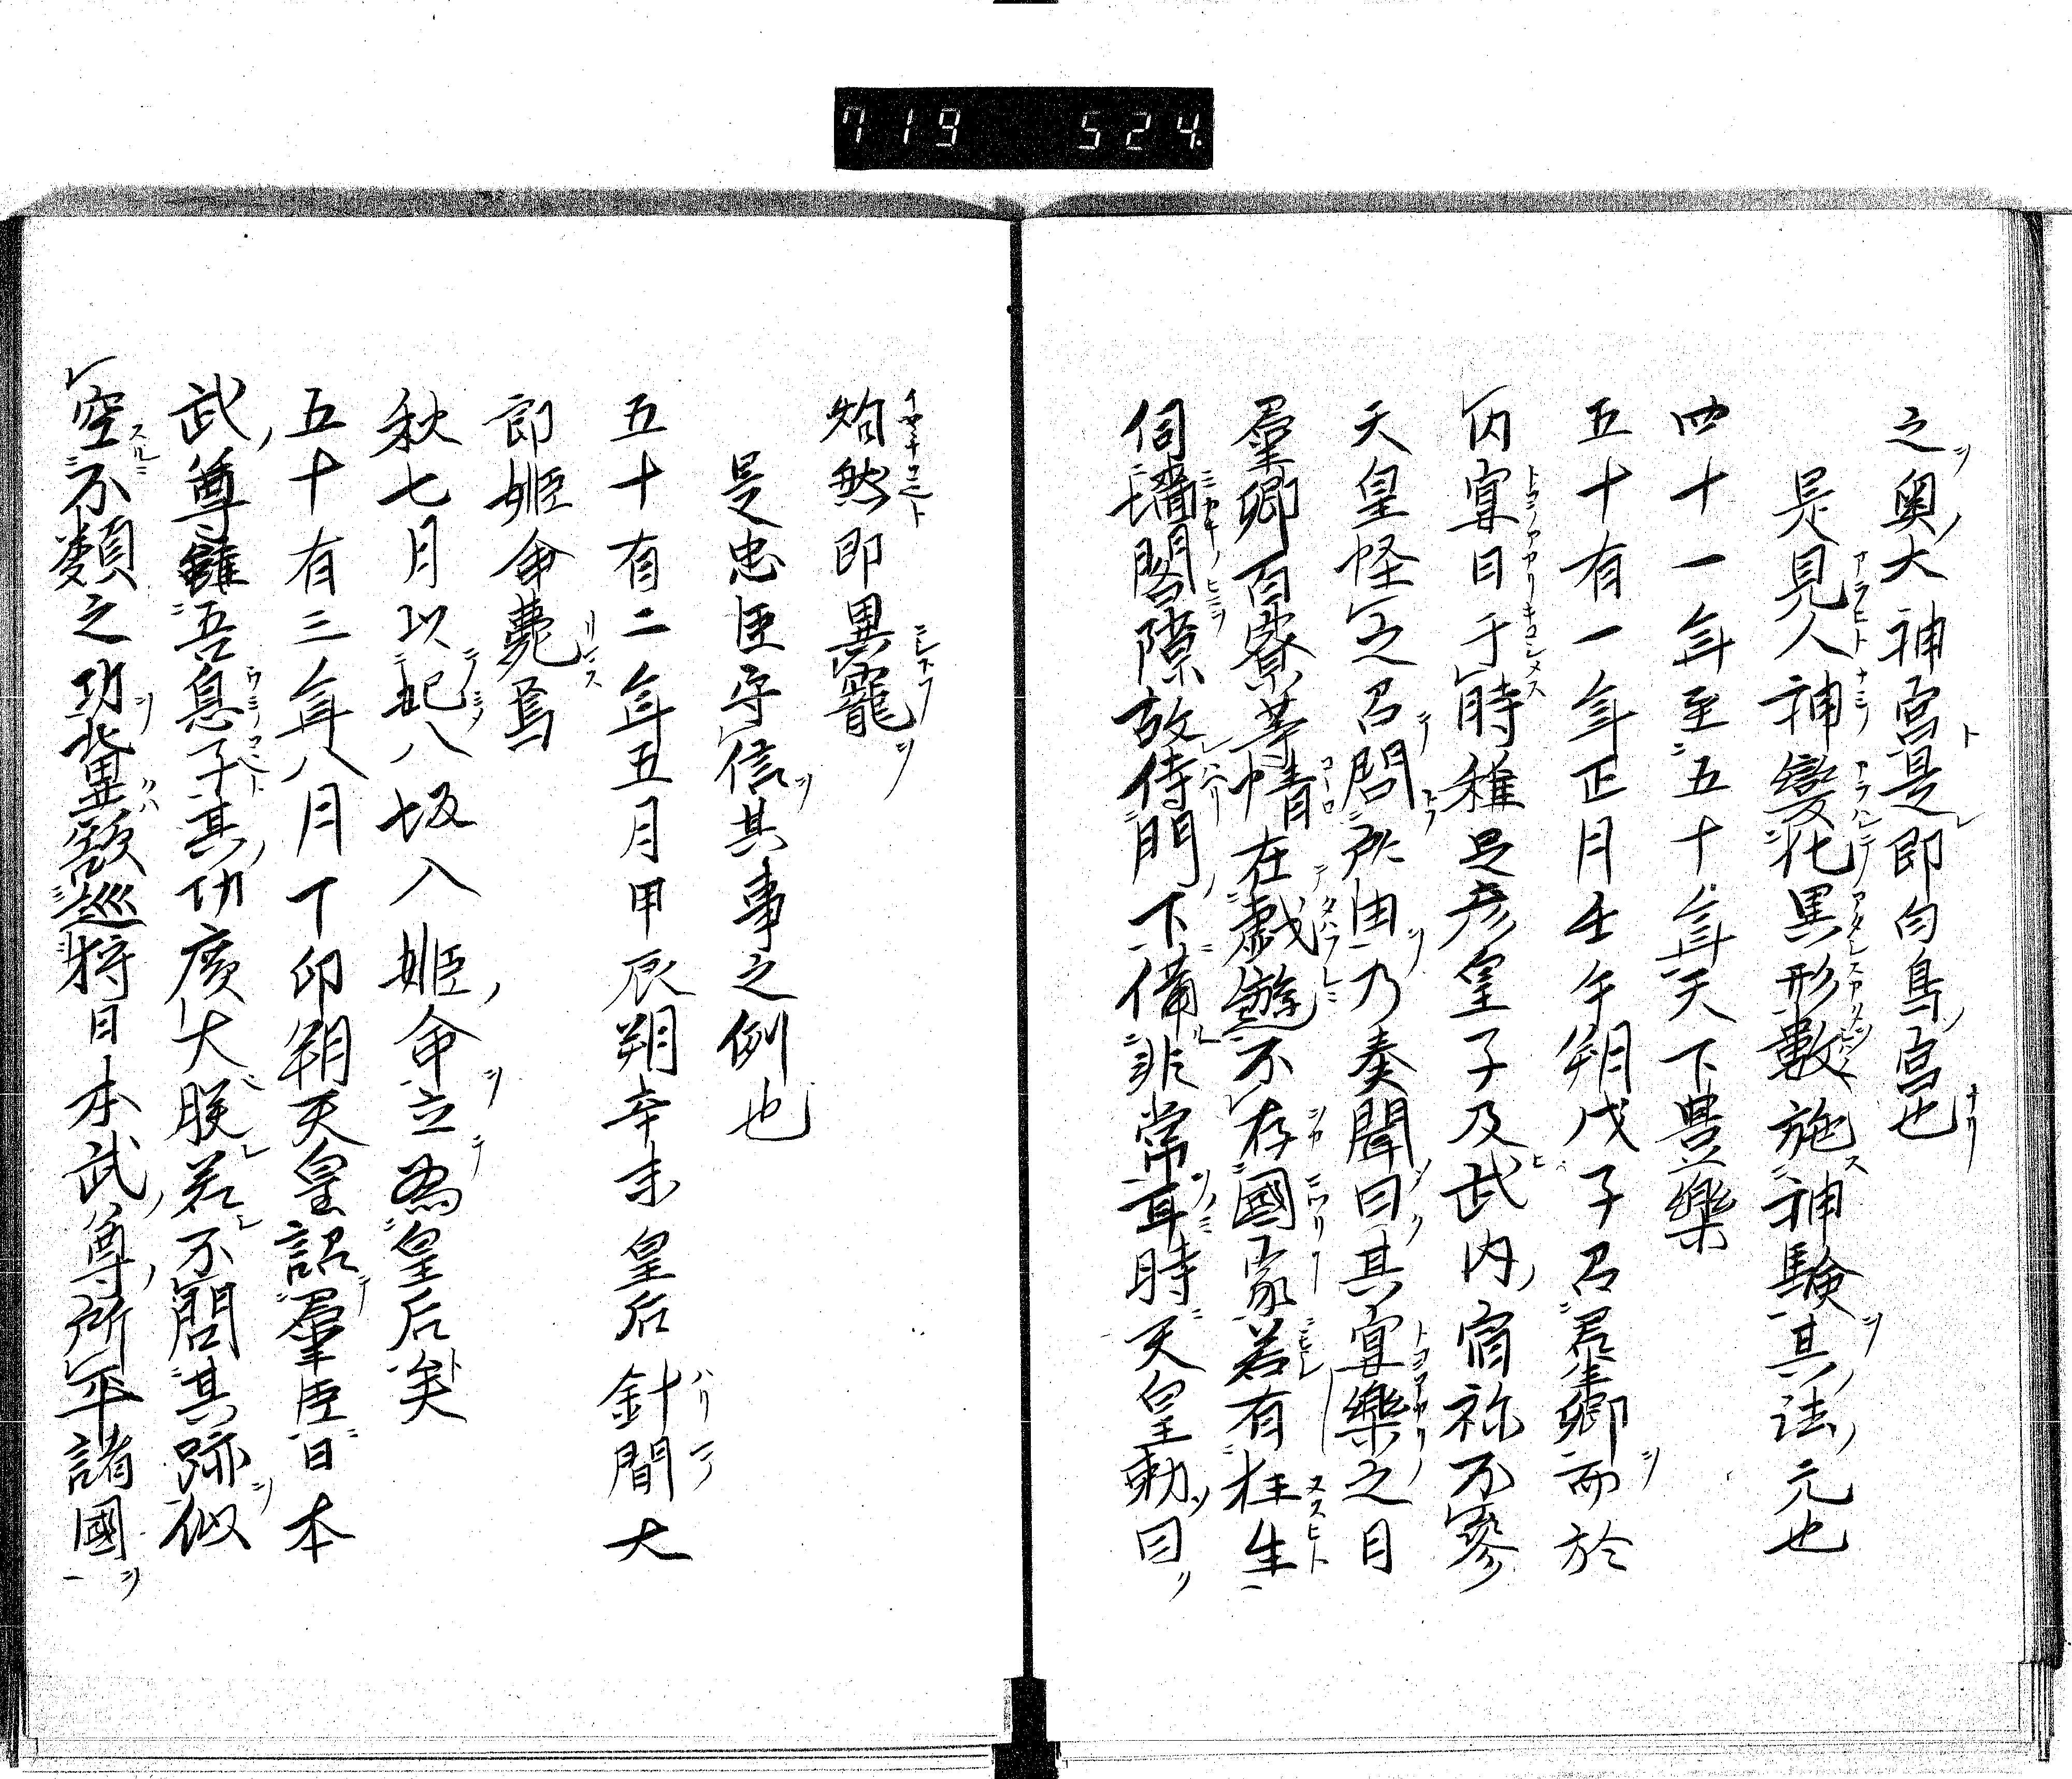 719 524
之奧大神宮是即白鳥宮也
是見人神變化異形數施神驗其法元也
四十一年至五十年天下豊樂
五十有一年正月壬午朔戊子召羣卿而於
内宴日于時稚足彦皇子及武内宿祢不參
天皇怪之召問所由乃奏聞曰其宴樂之日
羣卿百寮等情在戯遊不存國家若有狂生
伺墻閤隙故侍門下備非常耳時天皇勅曰
灼然即異寵
是忠臣守信其事之例也
五十有二年五月甲辰朔辛未皇后針間大
郎姫命薨焉
秋七月以妃八坂入姫命立為皇后矣
五十有三年八月丁卯朔天皇詔羣臣曰日本
武尊雖吾息子其功廣大朕若不問其跡似
空不類之功畢欲巡狩日本武尊所平諸國